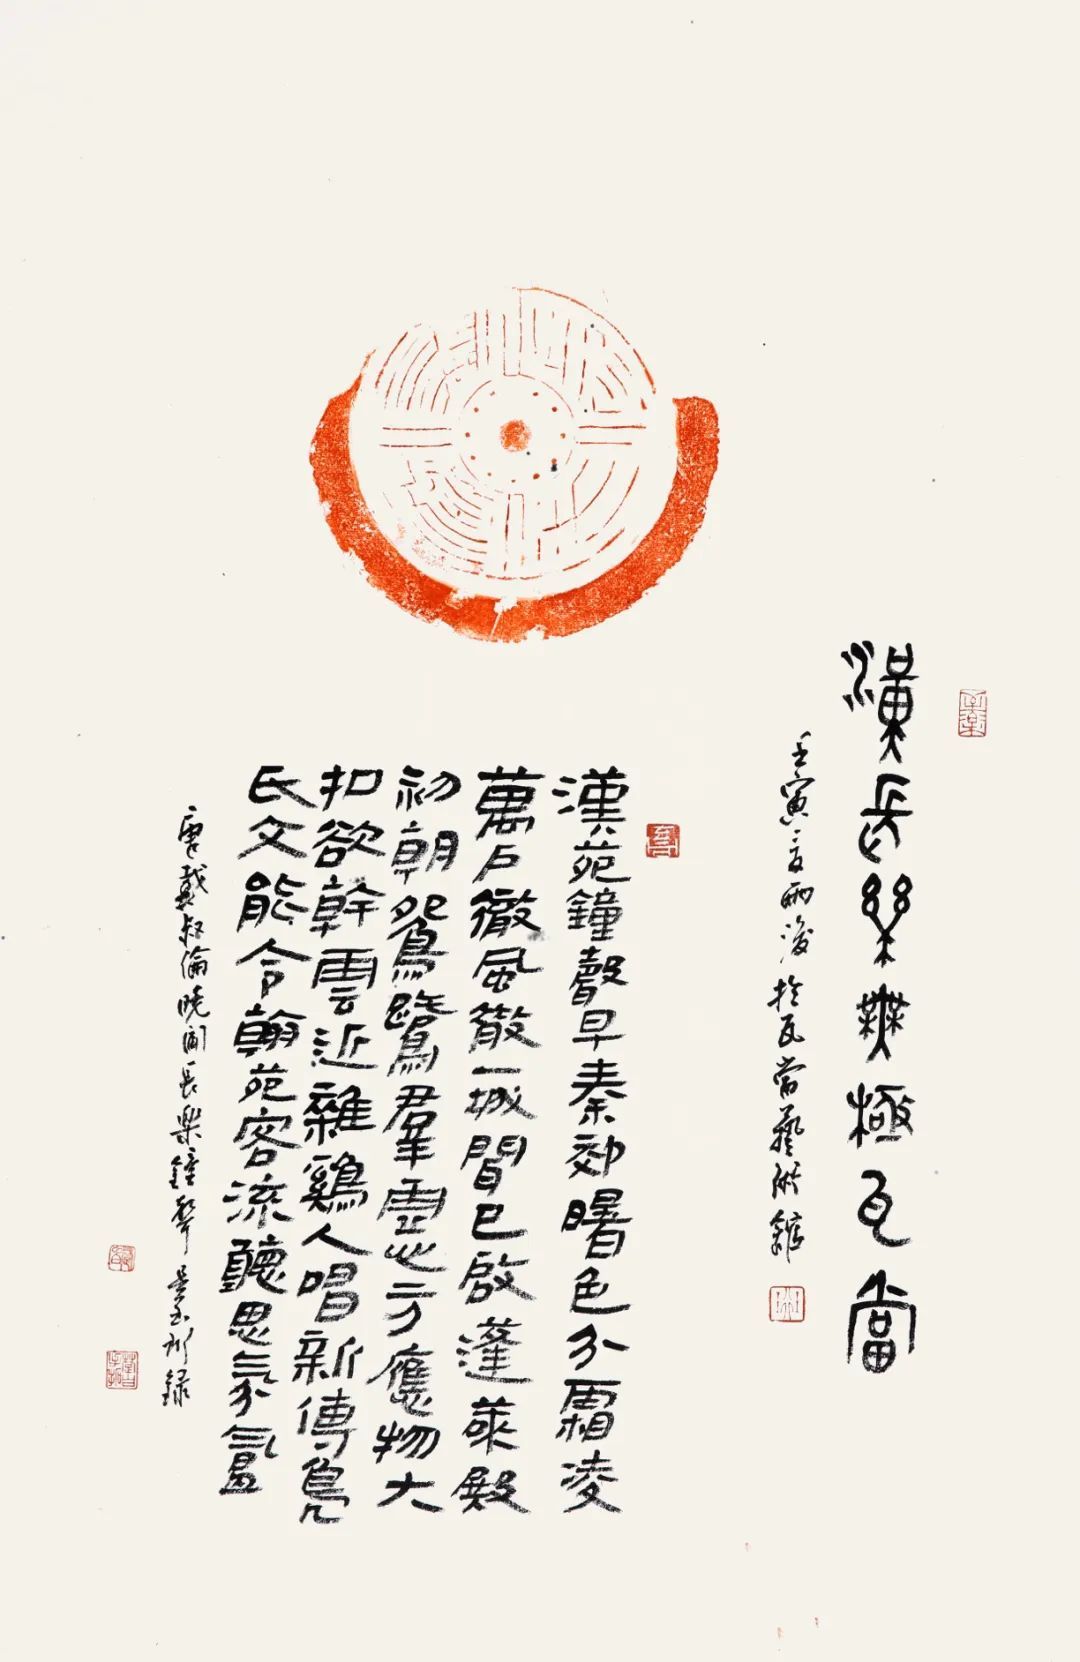 漢長樂無極瓦當
壬寅夏雨後於瓦當藝術館
漢苑鐘聲早秦郊曙色分霜凌
萬戶徹風散一城聞已啟蓬萊殿
初朝鴛鷺羣虛心方應物大
扣欲幹雲近雜鷄人唱新傳鳧
氏文能令翰苑客流聽思氛氳
唐戴叔倫曉聞長樂鐘聲 録